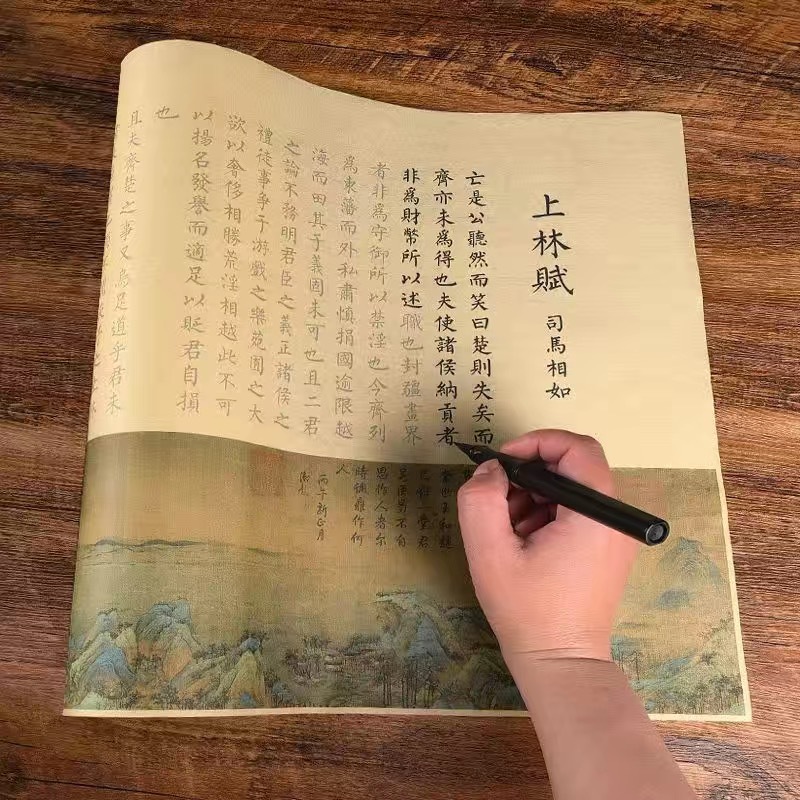 上林賦
司馬相如
亡是公聽然而笑曰楚則失矣而
齊亦未爲得也夫使諸侯納貢者
非爲財幣所以述職也封疆畫界
者非爲守御所以禁淫也今齊列
爲東藩而外私肅慎捐國逾限越
海而田其于義固未可也且二君
之論不務明君臣之義正諸侯之
禮徒事爭于游戲之樂苑囿之大
欲以奢侈相勝荒淫相越此不可
以揚名發譽而適足以貶君自損
也
且夫齊楚之事又烏足道乎君未
丙午新正月